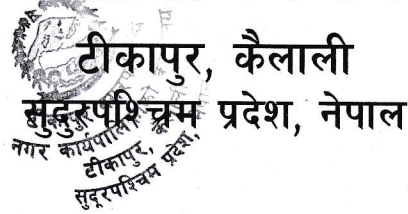 टीकापुर, कैलाली
सुदुरपश्चिम प्रदेश, नेपाल
नगर कार्यपालि
टीकापुर,
सुदूरपश्चिम प्रदेश,